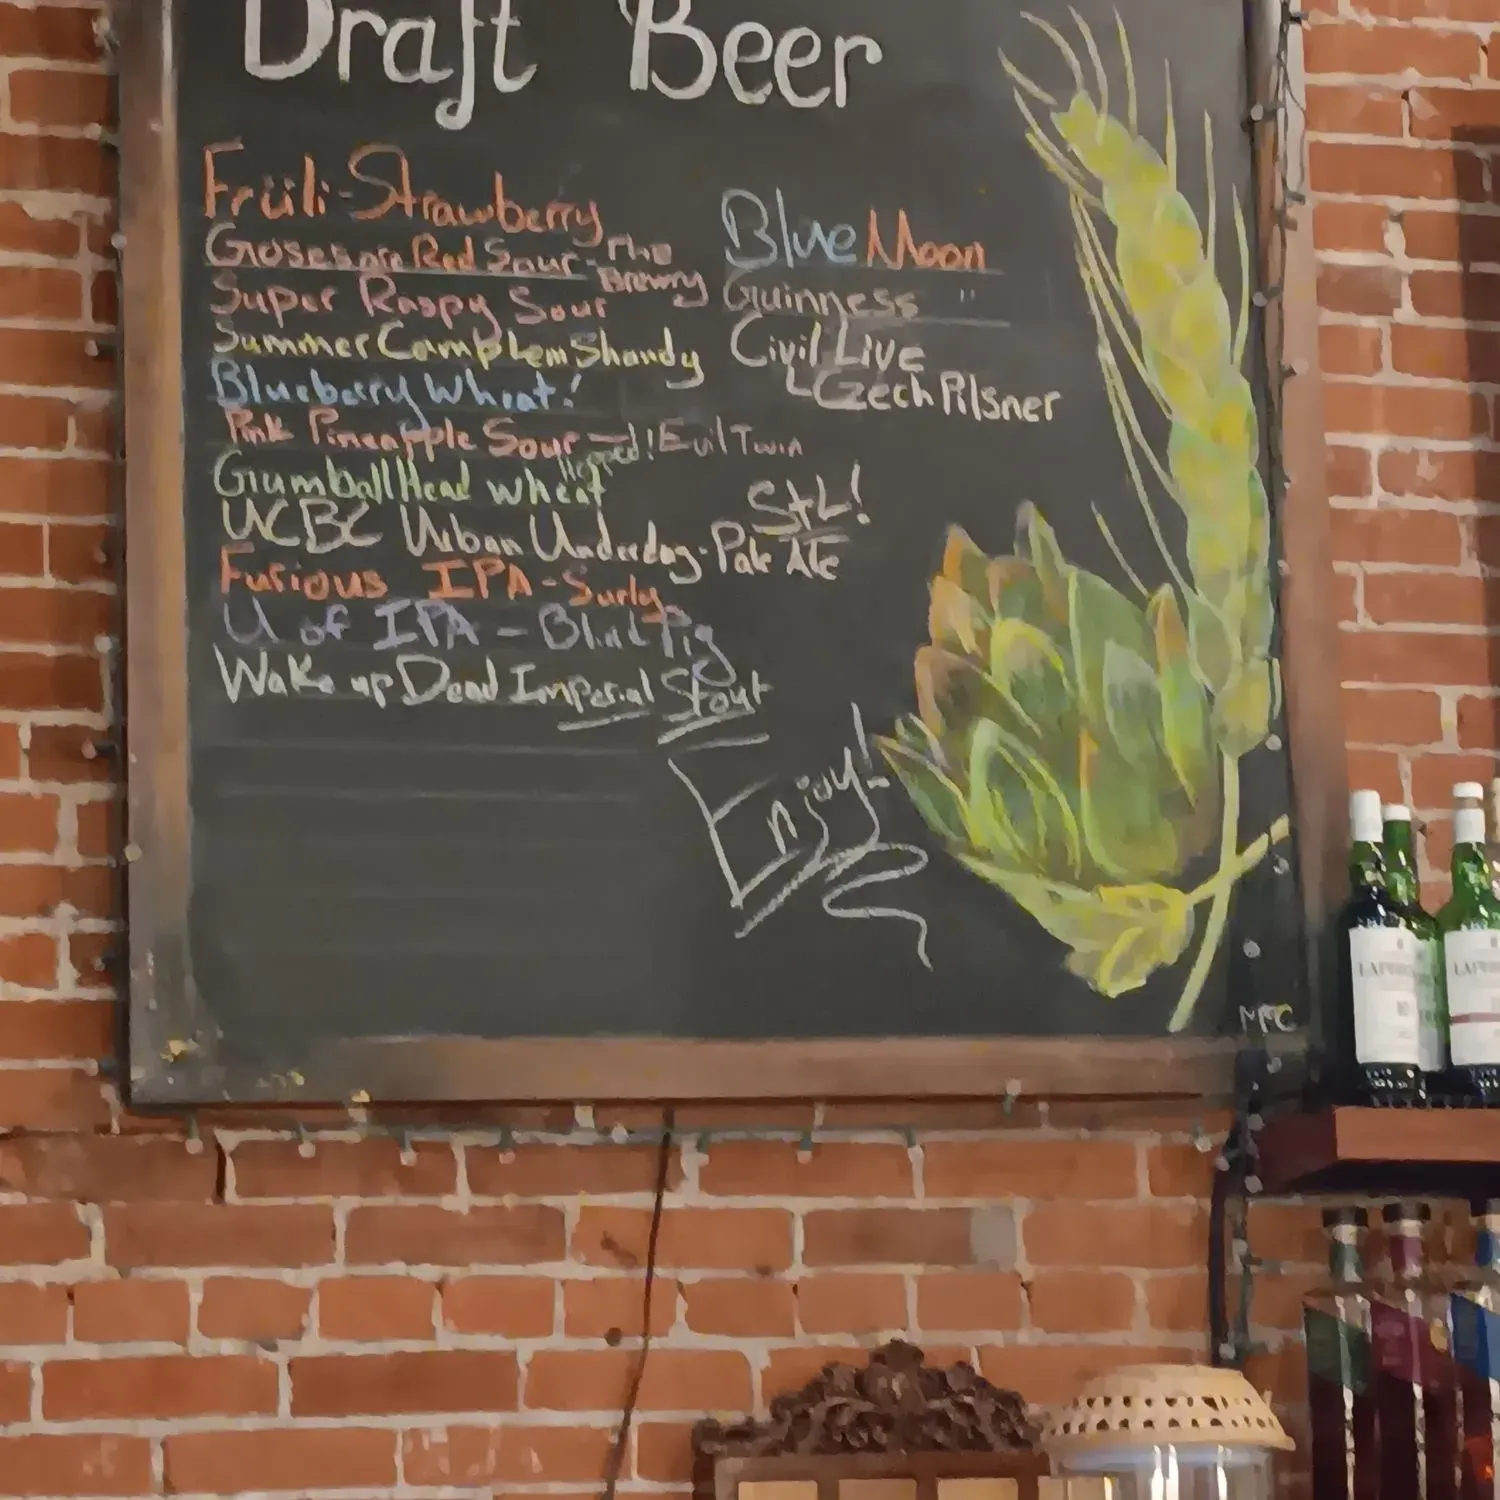 Draft Beer
Früli-Strawberry
Red Sour - The
Brewry
Super Raspy Sour
Summer Camp Lem Shandy
Blueberry Wheat!
Pink Pineapple Sour - Evil Twin
GumballHead wheat
UCBC Urban Underdog - Pale Ale
STL!
Furious IPA - Surly
U of IPA - Blind Pig
Wake up Dead Imperial Stout
Blue Moon
Guinness "
Civil Live
Czech Pilsner
Enjoy!
MFC